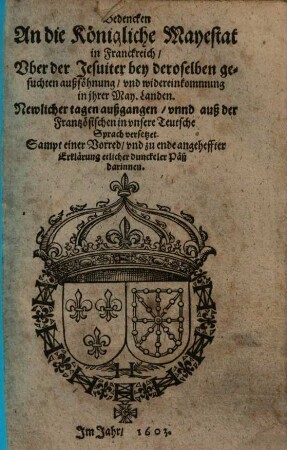 Bedencken
An die Königliche Mayestat
in Franckreich /
Vber der Jesuiter bey deroselben ge-
suchten außsöhnung / vnd widereinkommung
in jhrer May. Landen.
Newlicher tagen außgangen / vnnd auß der
Frantzösischen in vnsere Teutsche
Sprach versetzet.
Sampt einer Vorred / vnd zu ende angeheffter
Erklärung etlicher dunckeler Päß
darinnen.
Im Jahr / 1603.